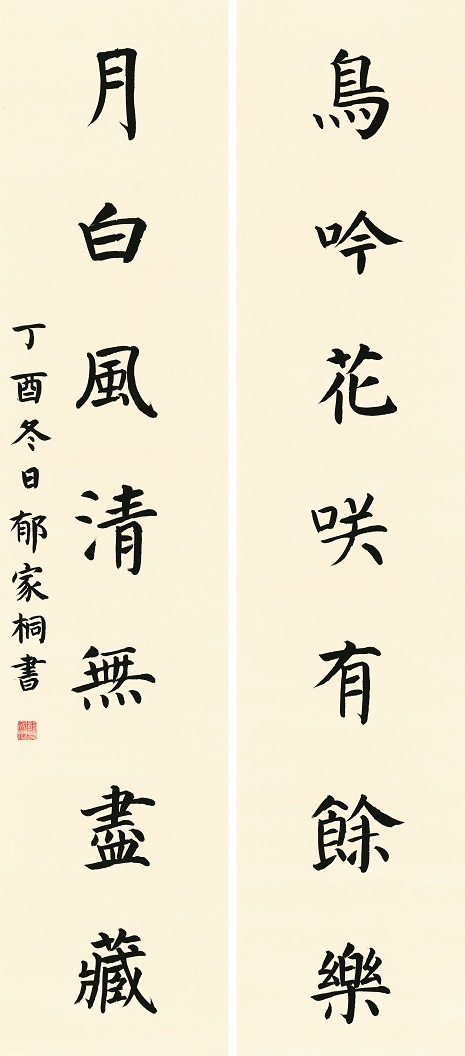 鳥吟花咲有餘樂
月白風清無盡藏
丁酉冬日郁家桐書